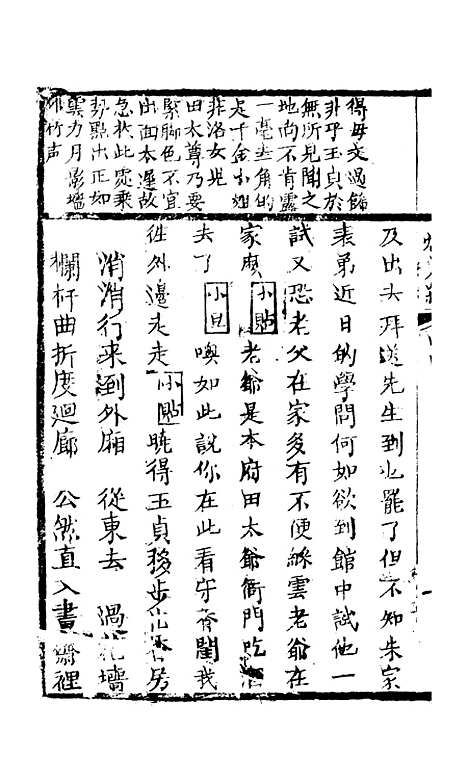 得毋交過飾
非乎玉貞於
無所見聞之
地尚不肯露
一毫圭角的
是千金小姐
非洛女比
田太尊乃要
緊腳色不宜
出面太遲故
急於此處乘
勢點出正如
雲力月影墻
外竹声
及出去拜送先生到也罷了但不知朱家
表弟近日的學問何如欲到館中試他一
試又恐老父在家多有不便綵雲老爺在
家麽小貼老爺是本府田太爺衙門吃酒
去了小旦噢如此說你在此看守香閨我
徃外邊走走小貼曉得玉貞移步出香房
消消行来到外廂 從東去 過花墻
欄杆曲折度廻廊 公然直入書齋裡